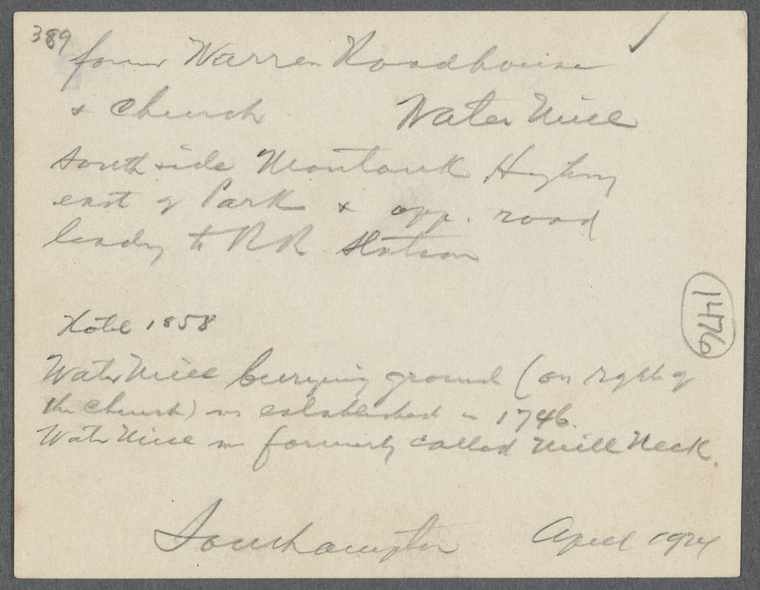 389
former Warren Roadhouse
& Church Water Mill
South side Montauk Highway
east of Park & opp. road
leading to RR Station
1476
Hotel 1858
Water Mill burying ground (on right of
the Church) was established in 1746.
Water Mill was formerly called Mill Neck.
Southampton April 1924